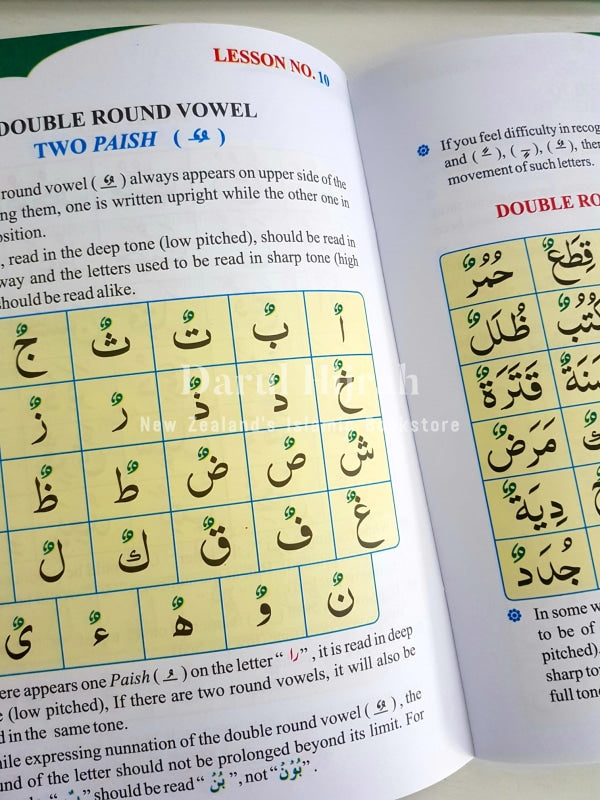 LESSON NO. 10
DOUBLE ROUND VOWEL
TWO PAISH ( ـٌ )
round vowel ( ـٌ ) always appears on upper side of the
them, one is written upright while the other one in
, read in the deep tone (low pitched), should be read in
way and the letters used to be read in sharp tone (high
should be read alike.
اٌ بٌ تٌ ثٌ جٌ
خٌ دٌ ذٌ رٌ زٌ
شٌ صٌ ضٌ طٌ ظٌ
غٌ فٌ قٌ كٌ لٌ
نٌ وٌ هٌ ءٌ ىٌ
appears one Paish ( ـُ ) on the letter “را”, it is read in deep
(low pitched), If there are two round vowels, it will also be
in the same tone.
expressing nunnation of the double round vowel ( ـٌ ), the
of the letter should not be prolonged beyond its limit. For
” should be read “بُنْ”, not “بُوْنْ”.
If you feel difficulty in
and ( ـً ), ( ـٍ ), ( ـٌ ),
movement of such letters.
DOUBLE
حُمُرٌ قِطَعٌ
ظُلَلٌ كُتُبٌ
قَتَرَةٌ
مَرَضٌ
دِيَةٌ
جُدَدٌ
In some
to be of
pitched).
sharp
full
Darul Hijrah
New Zealand's Islamic Bookstore